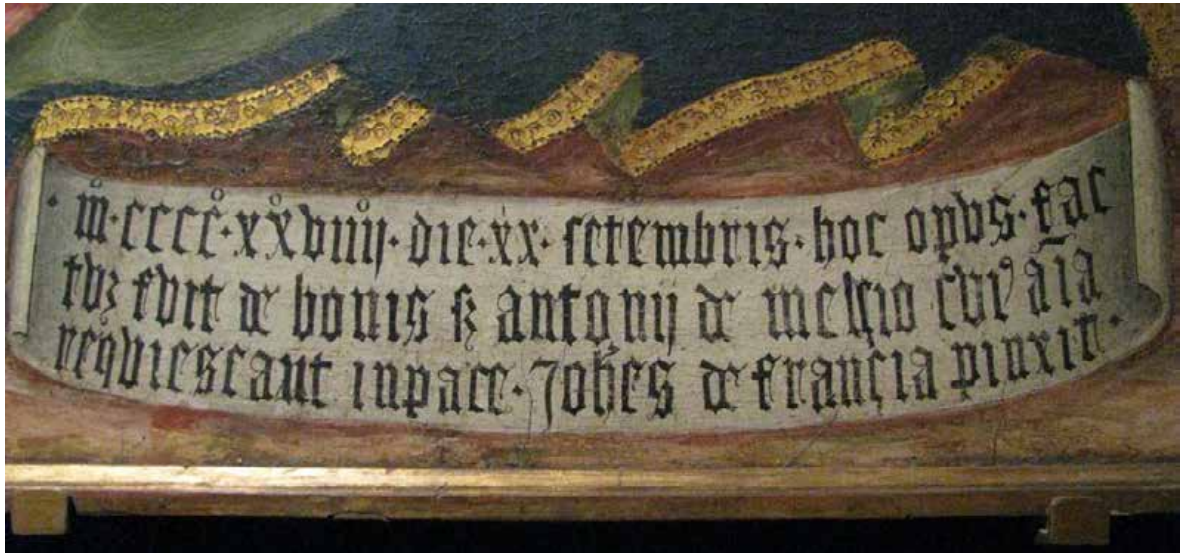 · m̊ · cccc̊ · xx̊vıııj̊ · die · xx · setembris · hoc opvs · fac
tvʒ fvit de bonis ẜ antonij de mescio cvꝰ aı̄a
reqviescant inpace · Joħes de francia pinxit ·